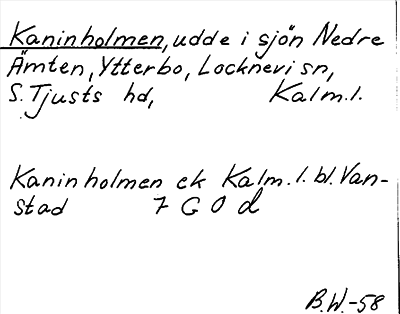 Kaninholmen, udde i sjön Nedre
Ämten, Ytterbo, Locknevi sn,
S. Tjusts hd, Kalm. l.
Kaninholmen ek Kalm. l. bl. Van-
stad 7 G 0 d
B.W.-58